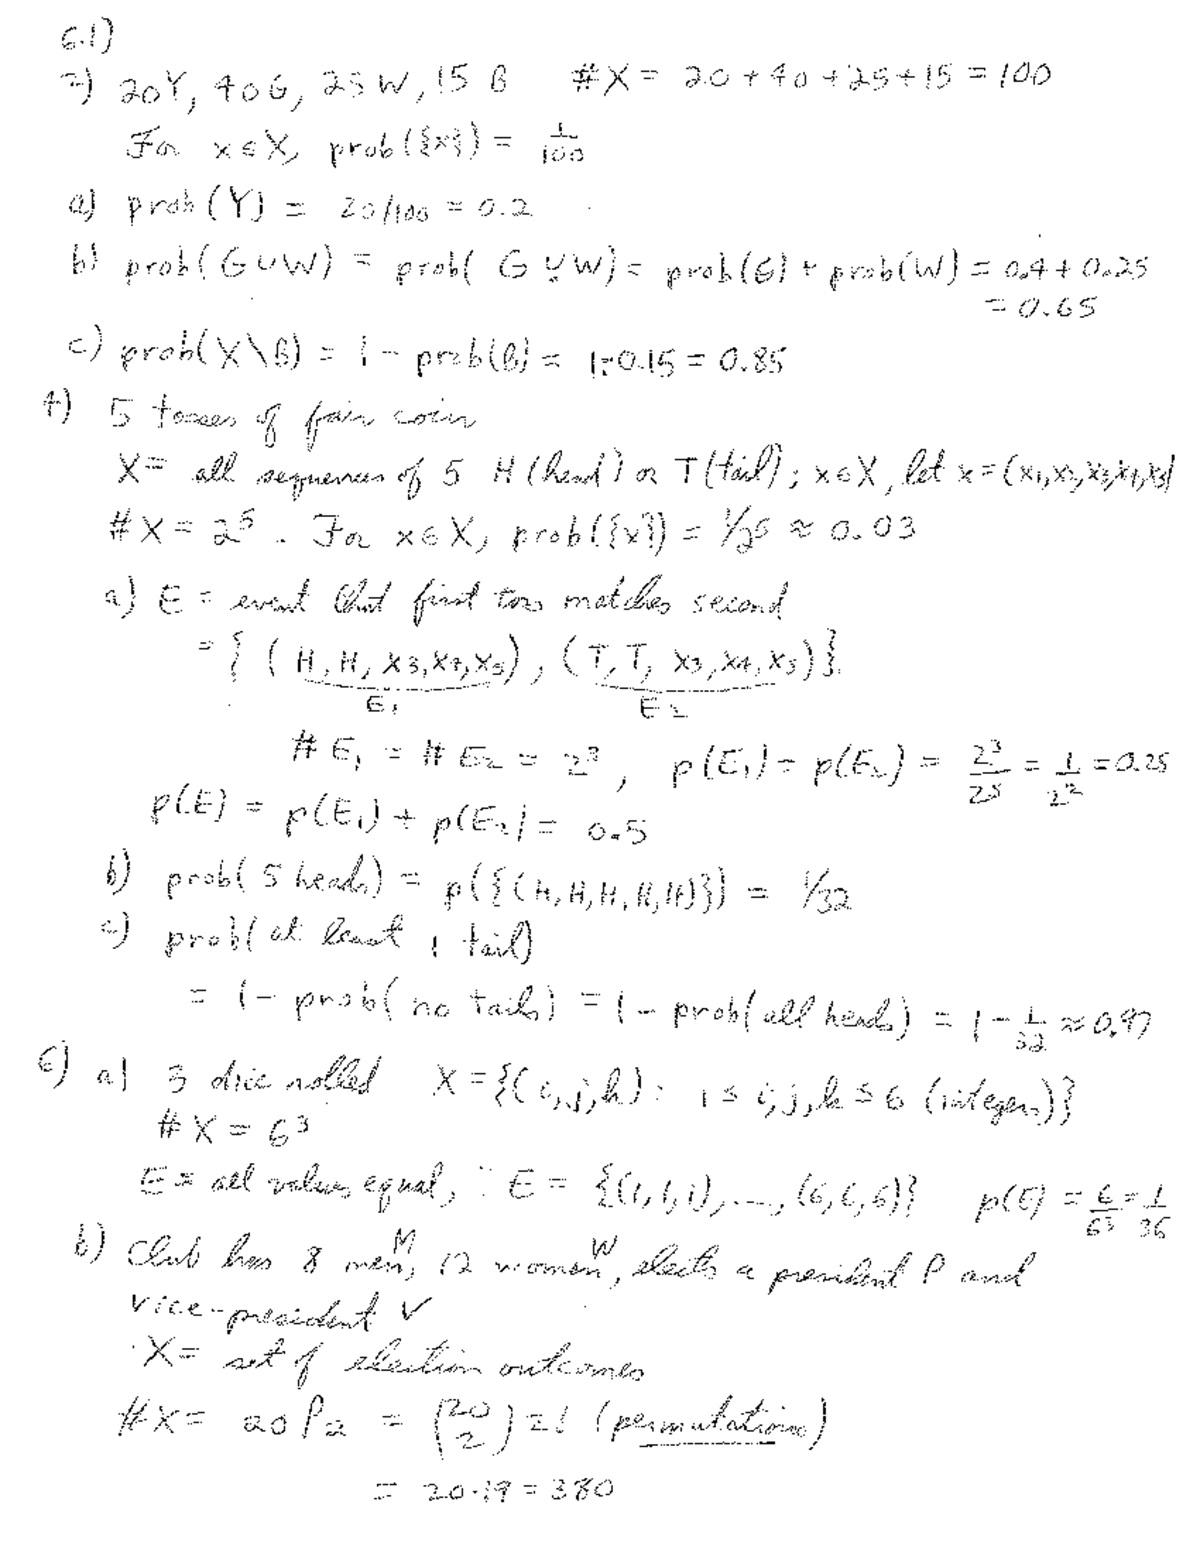 6.1)
2) 20Y, 40G, 25W, 15B #X = 20+40+25+15 = 100
For x∈X, prob({x}) = 1/100
a) prob(Y) = 20/100 = 0.2
b) prob(G∪W) = prob(G ⊍ W) = prob(G) + prob(W) = 0.4 + 0.25
= 0.65
c) prob(X\B) = 1 - prob(B) = 1-0.15 = 0.85
4) 5 tosses of fair coin
X = all sequences of 5 H (head) or T (tail); x∈X, let x = (x1,x2,x3,x4,x5)
#X = 2^5. For x∈X, prob({x}) = 1/2^5 ≈ 0.03
a) E = event that first toss matches second
= { (H, H, x3,x4,x5), (T, T, x3,x4,x5)}
E1 E2
#E1 = #E2 = 2^3, p(E1) = p(E2) = 2^3/2^5 = 1/2^2 = 0.25
p(E) = p(E1) + p(E2) = 0.5
b) prob(5 heads) = p({(H,H,H,H,H)}) = 1/32
c) prob(at least 1 tail)
= 1 - prob(no tails) = 1 - prob(all heads) = 1 - 1/32 ≈ 0.97
6) a) 3 dice rolled X = {(i,j,k): 1 ≤ i,j,k ≤ 6 (integers)}
#X = 6^3
E = all values equal, E = {(1,1,1), ..., (6,6,6)} p(E) = 6/6^3 = 1/36
b) Club has 8 men, M 12 women W, elects a president P and
vice-president V
X = set of election outcomes
#X = 20P2 = (20 2) 2! (permutations)
= 20·19 = 380